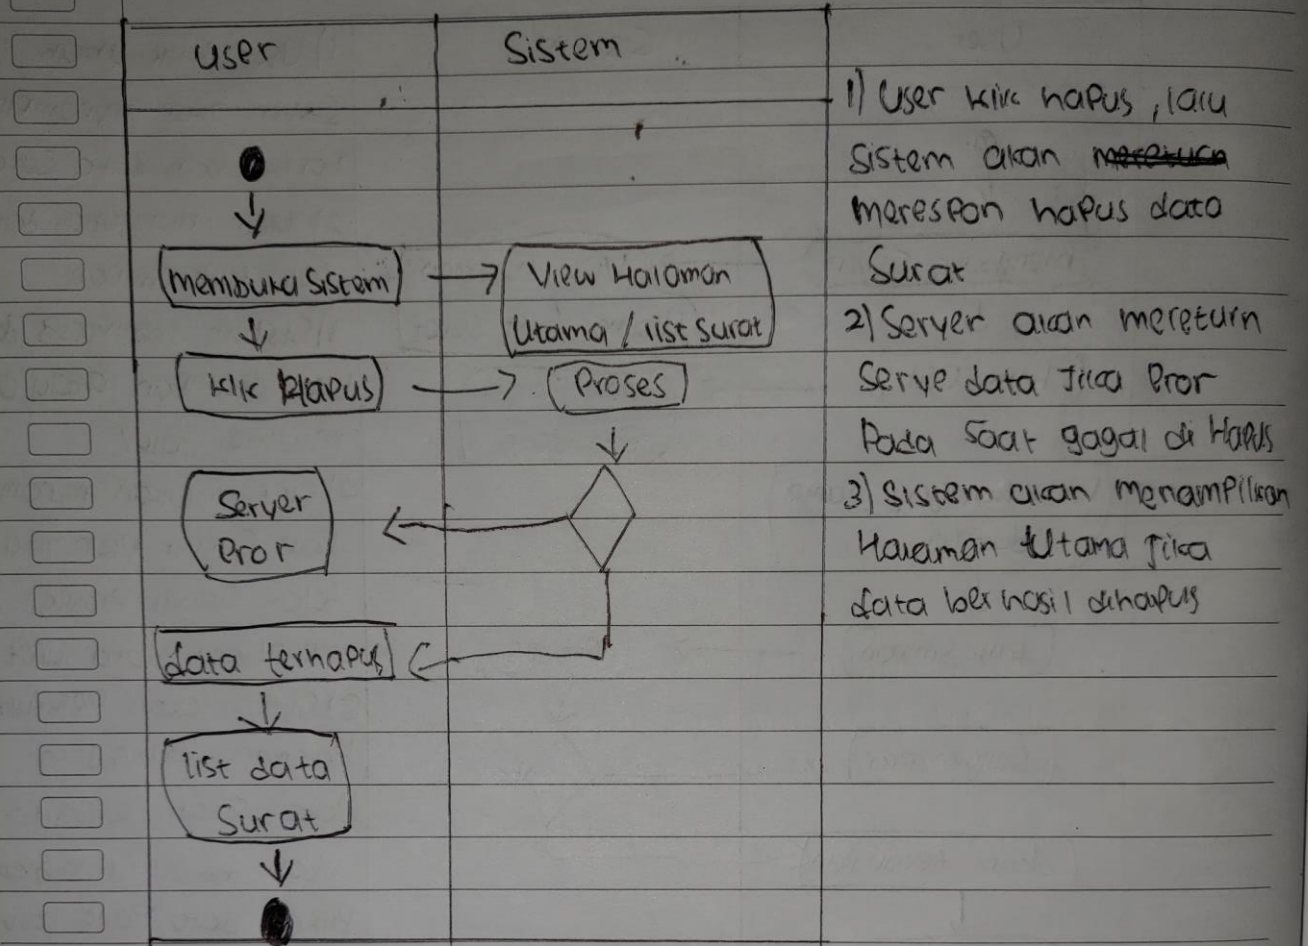 User
Sistem
membuka sistem
View Halaman
Utama / list surat
Klik Hapus
Proses
Server
eror
data terhapus
list data
Surat
1) User klik hapus, lalu
Sistem akan
merespon hapus data
Surat
2) Server akan mereturn
Serve data Jika eror
Pada Saat gagal di Hapus
3) Sistem akan menampilkan
Halaman Utama Jika
data berhasil dihapus